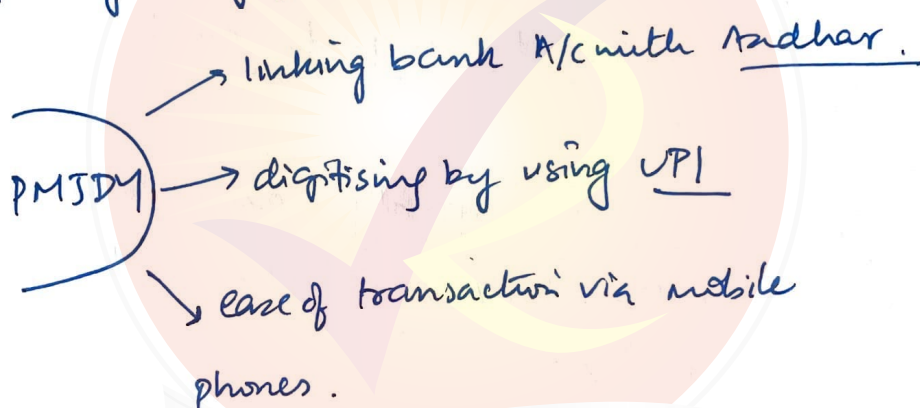 linking bank A/c with Aadhar.
PMJDY → digitising by using UPI
ease of transaction via mobile
phones.